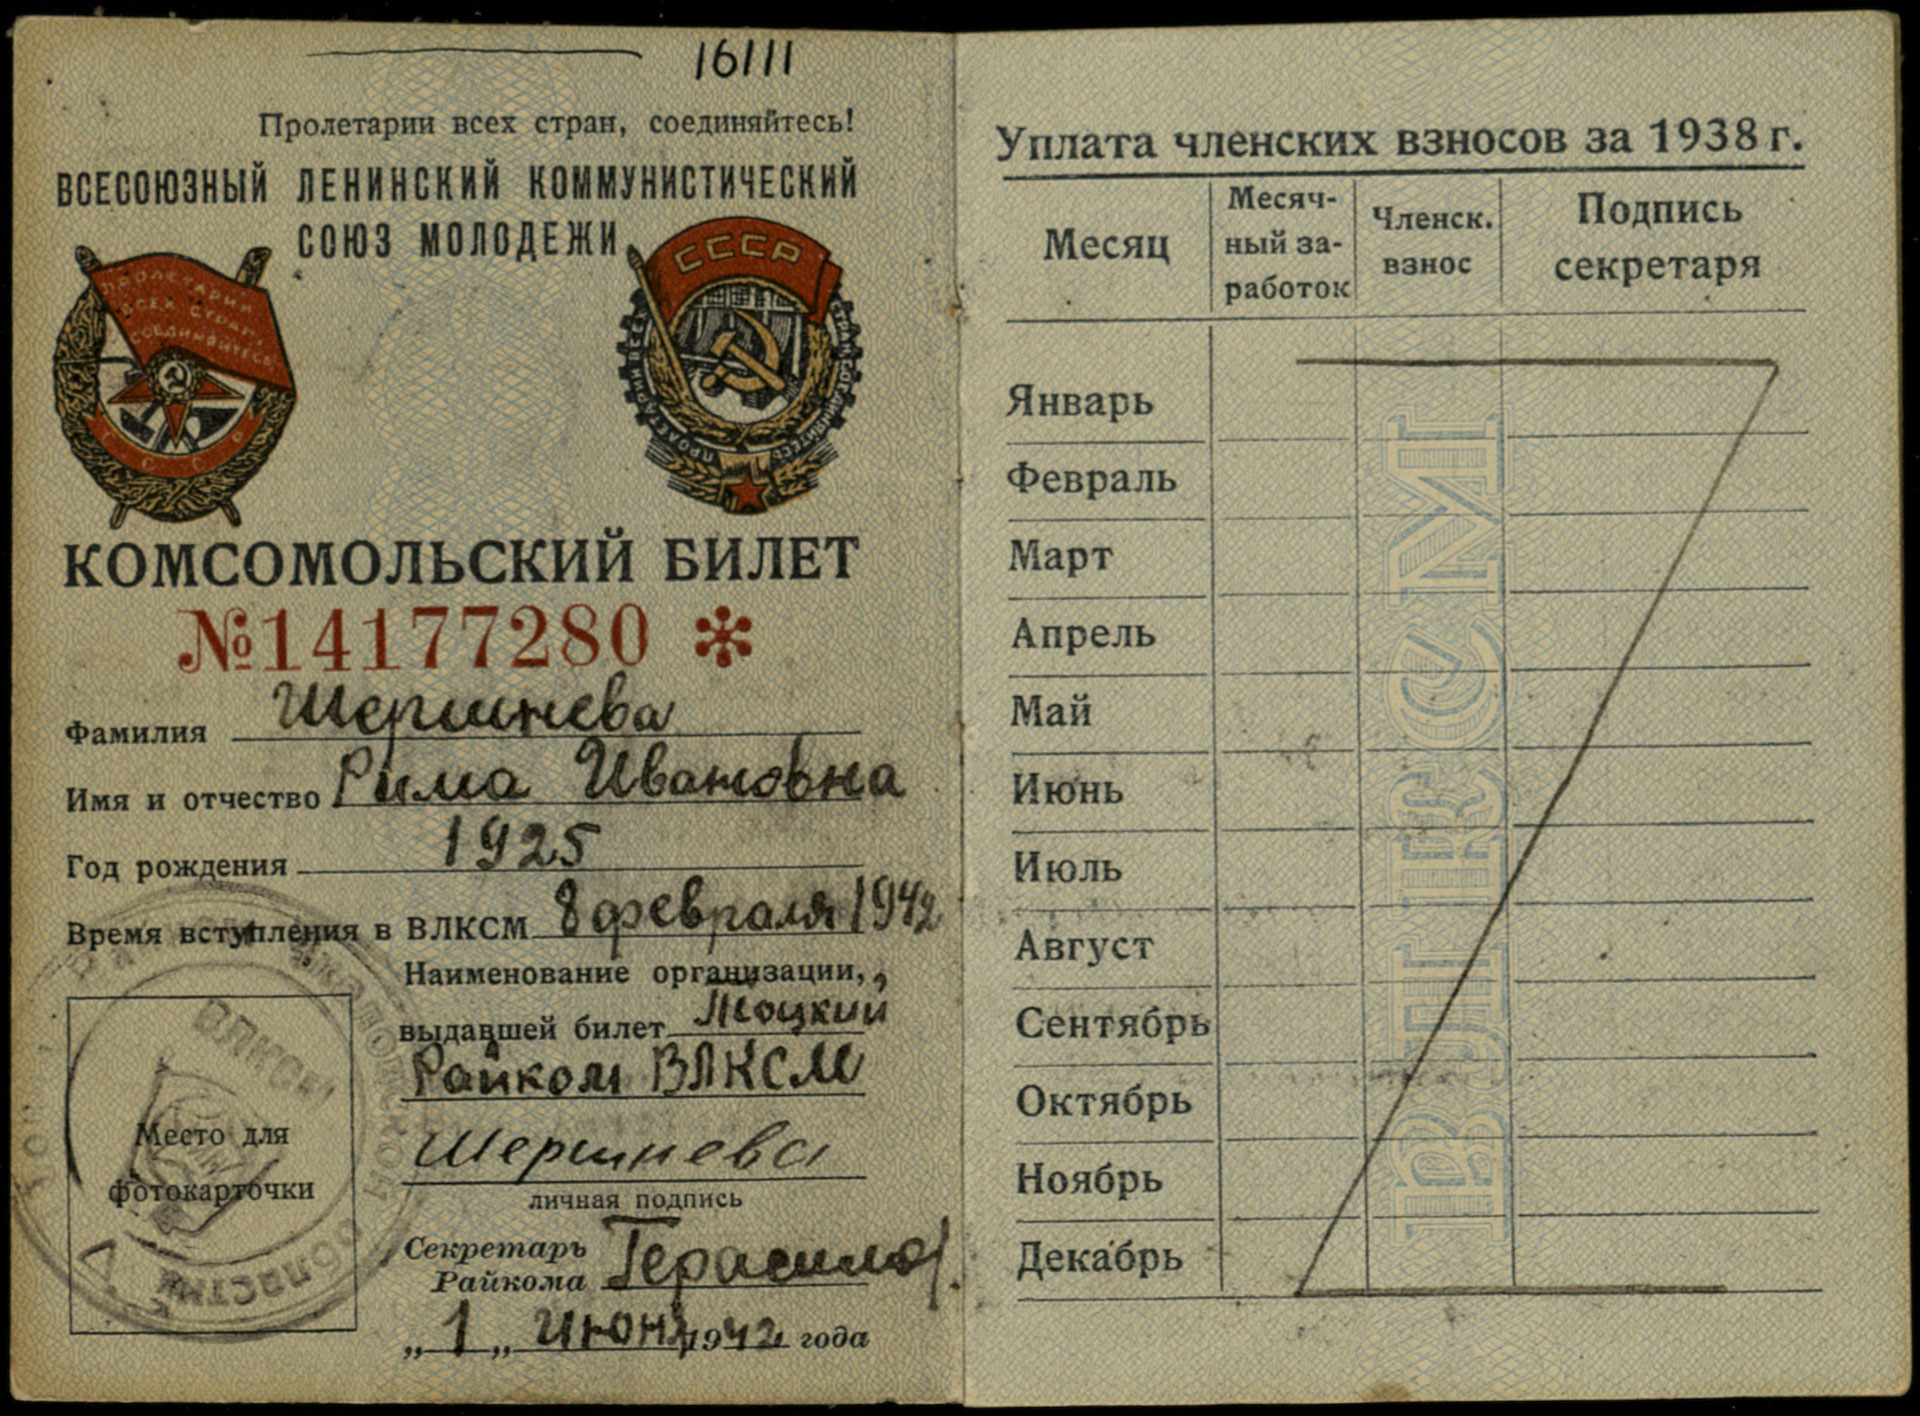 16111
Пролетарии всех стран, соединяйтесь!
ВСЕСОЮЗНЫЙ ЛЕНИНСКИЙ КОММУНИСТИЧЕСКИЙ
СОЮЗ МОЛОДЕЖИ
ПРОЛЕТАРИИ
ВСЕХ СТРАН,
СОЕДИНЯЙТЕСЬ
СССР
КОМСОМОЛЬСКИЙ БИЛЕТ
№14177280 *
Фамилия Шершнева
Имя и отчество Рима Ивановна
Год рождения 1925
Время вступления в ВЛКСМ 8 февраля 1942
Наименование организации,
выдавшей билет Тоцкий
Райком ВЛКСМ
Шершнева
личная подпись
Место для
фотокарточки
ВЛКСМ
Секретарь
Райкома Герасимов
„1„ июня 1942 года
Уплата членских взносов за 1938 г.
Месяц
Месяч-
ный за-
работок
Членск.
взнос
Подпись
секретаря
Январь
Февраль
Март
Апрель
Май
Июнь
Июль
Август
Сентябрь
Октябрь
Ноябрь
Декабрь
ВЛКСМ